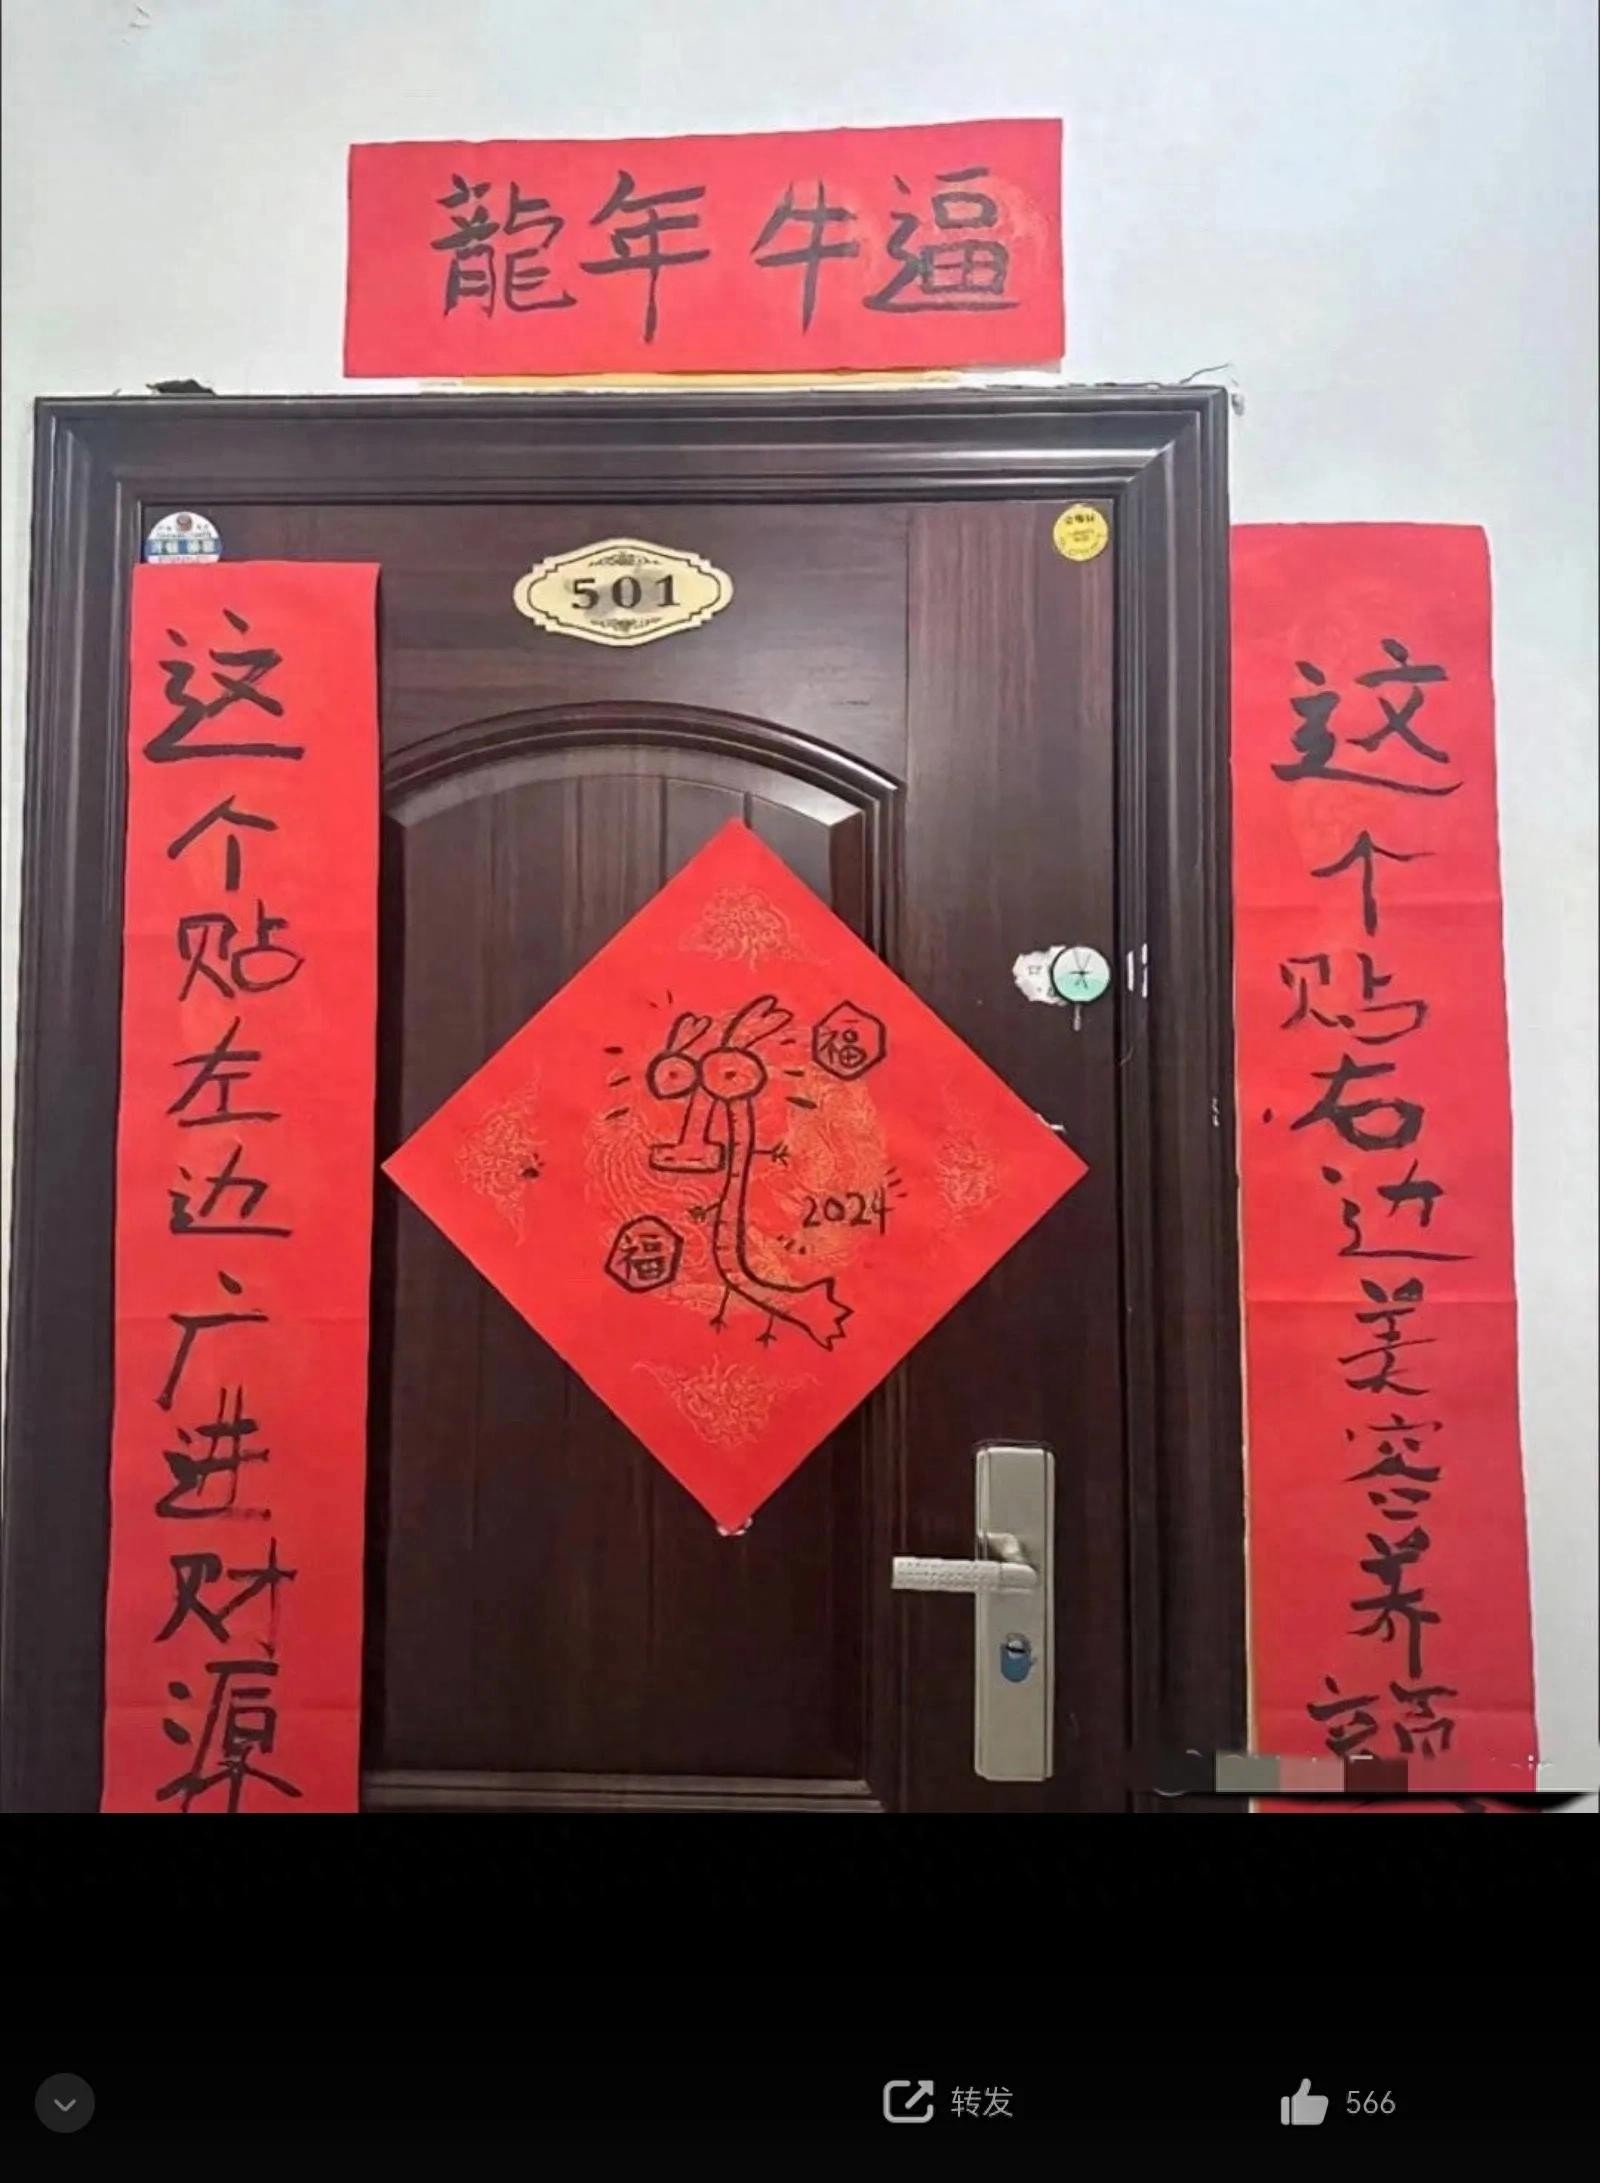 龍年牛逼
501
这个贴左边广进财源
这个贴右边美容养
福
2024
福
转发
566